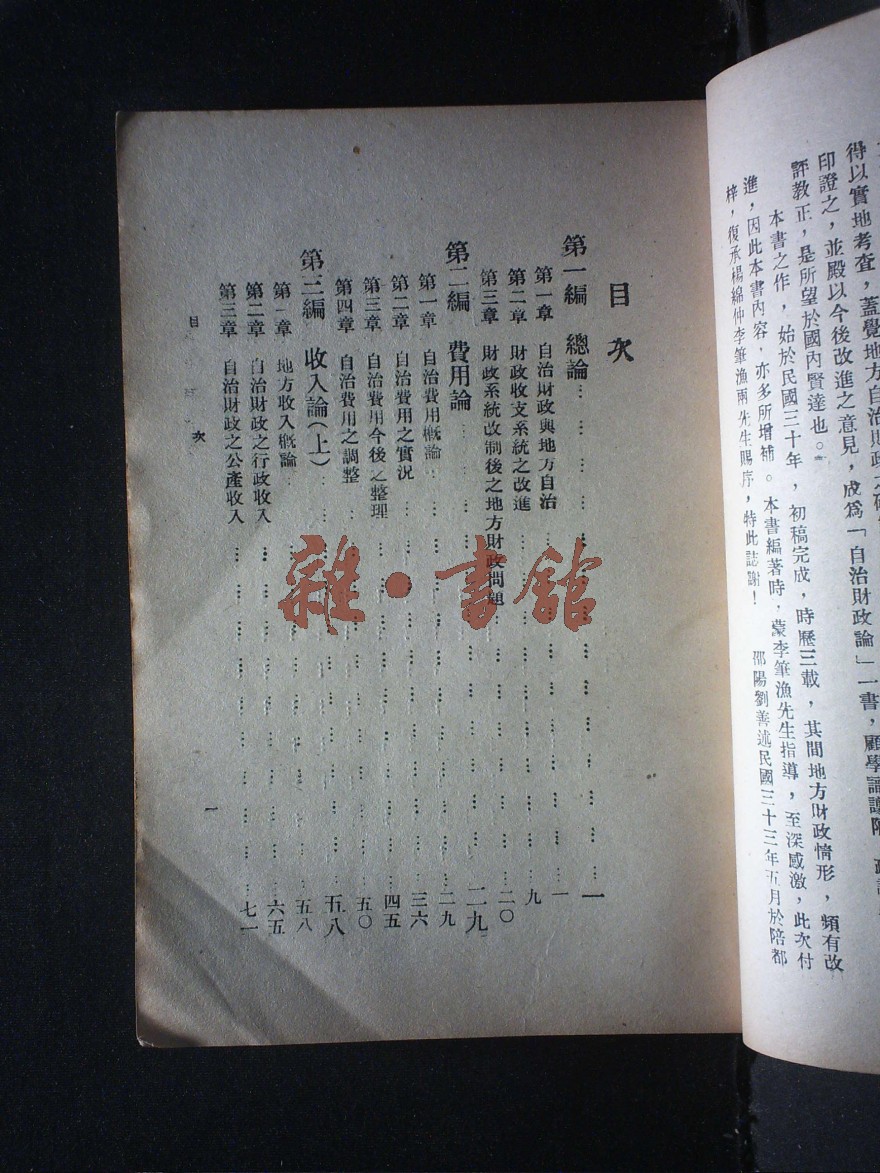 得以實地考查，蓋覺地方自治財政之
印證之，並殿以今後改進之意見，成爲「自治財政論」一書，顧學識譾陋
評教正，是所望於國內賢達也。
本書之作，始於民國三十年，初稿完成，時歷三載，其間地方財政情形，頻有改
進，因此本書內容，亦多所增補。本書編著時，蒙李筆漁先生指導，至深感激，此次付
梓，復承楊綿仲李筆漁兩先生賜序，特此誌謝！
邵陽劉善述民國三十三年五月於陪都
目次
第一編 總論…一
第一章 自治財政與地方自治…一
第二章 財政收支系統之改進…九
第三章 財政系統改制後之地方財政問題…二〇
第二編 費用論…二九
第一章 自治費用概論…二九
第二章 自治費用之實況…三六
第三章 自治費用今後之整理…四五
第四章 自治費用之調整…五〇
第三編 收入論(上)…五八
第一章 地方收入概論…五八
第二章 自治財政之行政收入…六五
第三章 自治財政之公產收入…七一
目 次
一
雜·書館